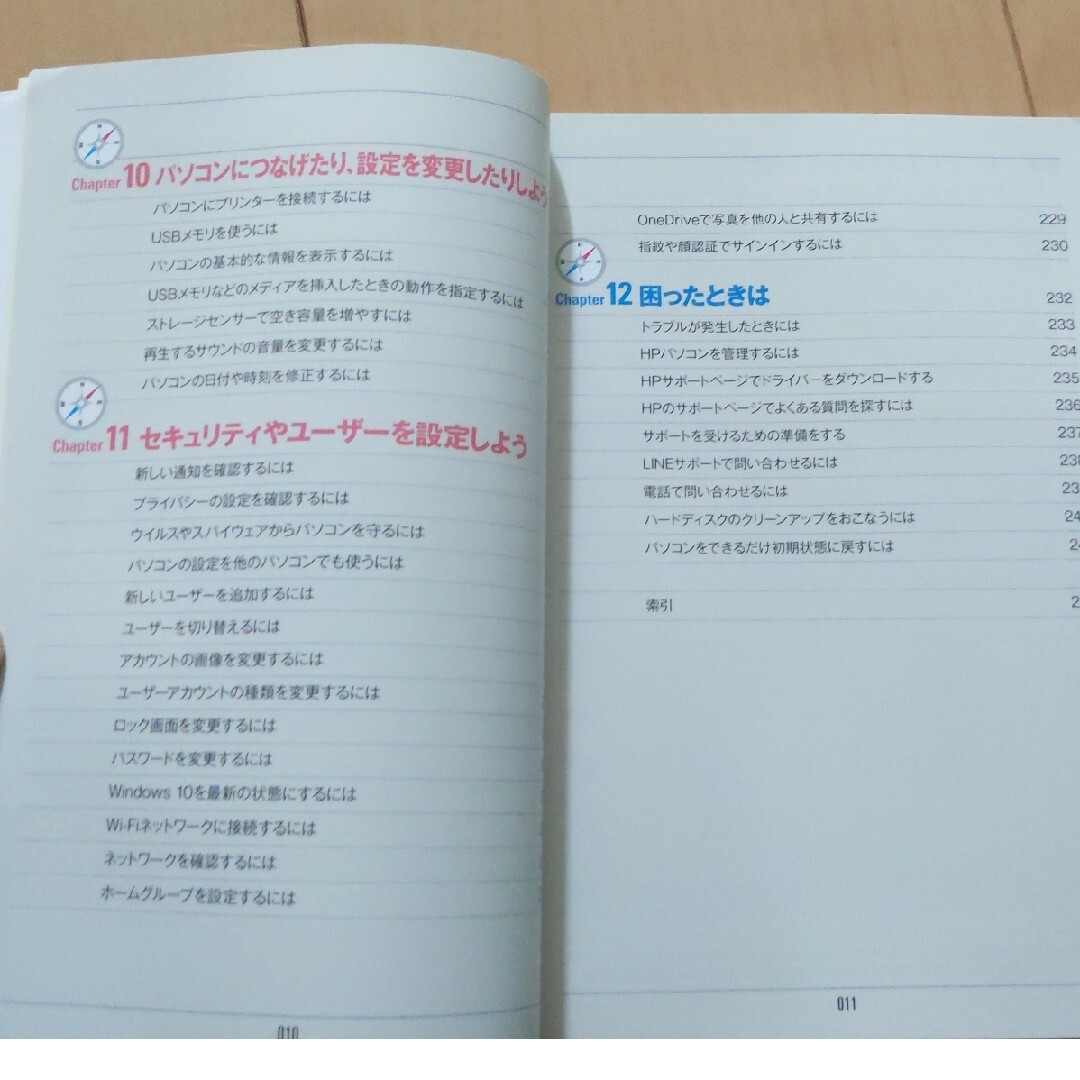 Chapter 10 パソコンにつなげたり、設定を変更したりしよう
パソコンにプリンターを接続するには
USBメモリを使うには
パソコンの基本的な情報を表示するには
USBメモリなどのメディアを挿入したときの動作を指定するには
ストレージセンサーで空き容量を増やすには
再生するサウンドの音量を変更するには
パソコンの日付や時刻を修正するには
Chapter 11 セキュリティやユーザーを設定しよう
新しい通知を確認するには
プライバシーの設定を確認するには
ウイルスやスパイウェアからパソコンを守るには
パソコンの設定を他のパソコンでも使うには
新しいユーザーを追加するには
ユーザーを切り替えるには
アカウントの画像を変更するには
ユーザーアカウントの種類を変更するには
ロック画面を変更するには
パスワードを変更するには
Windows 10を最新の状態にするには
Wi-Fiネットワークに接続するには
ネットワークを確認するには
ホームグループを設定するには
010
OneDriveで写真を他の人と共有するには 229
指紋や顔認証でサインインするには 230
Chapter 12 困ったときは 232
トラブルが発生したときには 233
HPパソコンを管理するには 234
HPサポートページでドライバーをダウンロードする 235
HPのサポートページでよくある質問を探すには 236
サポートを受けるための準備をする 237
LINEサポートで問い合わせるには
電話で問い合わせるには
ハードディスクのクリーンアップをおこなうには
パソコンをできるだけ初期状態に戻すには
索引
011